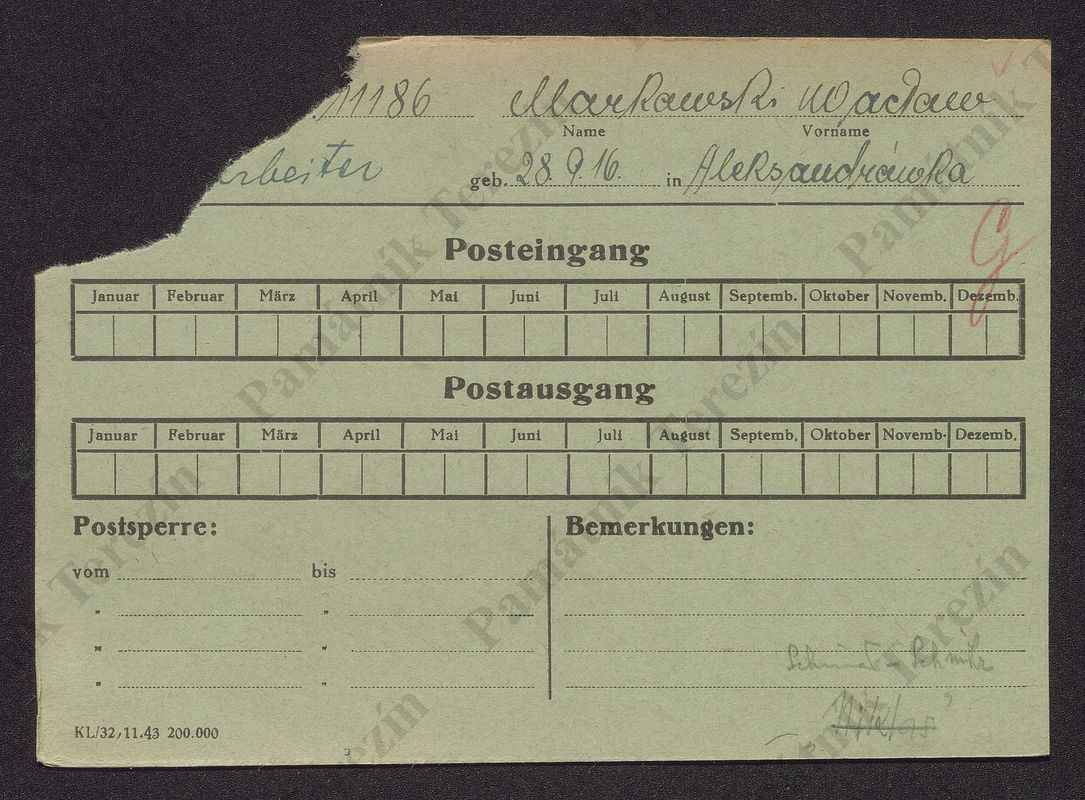 11186 Markawski Wacław
Name Vorname
arbeiter geb. 28.9.16. in Aleksandrówka
G
Posteingang
Januar Februar März April Mai Juni Juli August Septemb. Oktober Novemb. Dezemb.
Postausgang
Januar Februar März April Mai Juni Juli August Septemb. Oktober Novemb. Dezemb.
Postsperre: Bemerkungen:
vom bis
" "
" "
" "
KL/32, 11.43 200.000
Památník Terezín